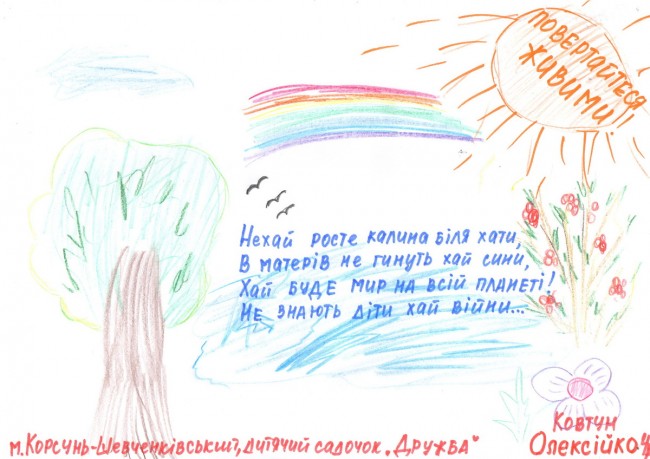 ПОВЕРТАЙТЕСЯ
ЖИВИМИ!!
Нехай росте калина біля хати,
В матерів не гинуть хай сини,
Хай буде мир на всій планеті!
Не знають діти хай війни...
Ковтун
Олексійко
м. Корсунь-Шевченківський, дитячий садочок „Дружба"